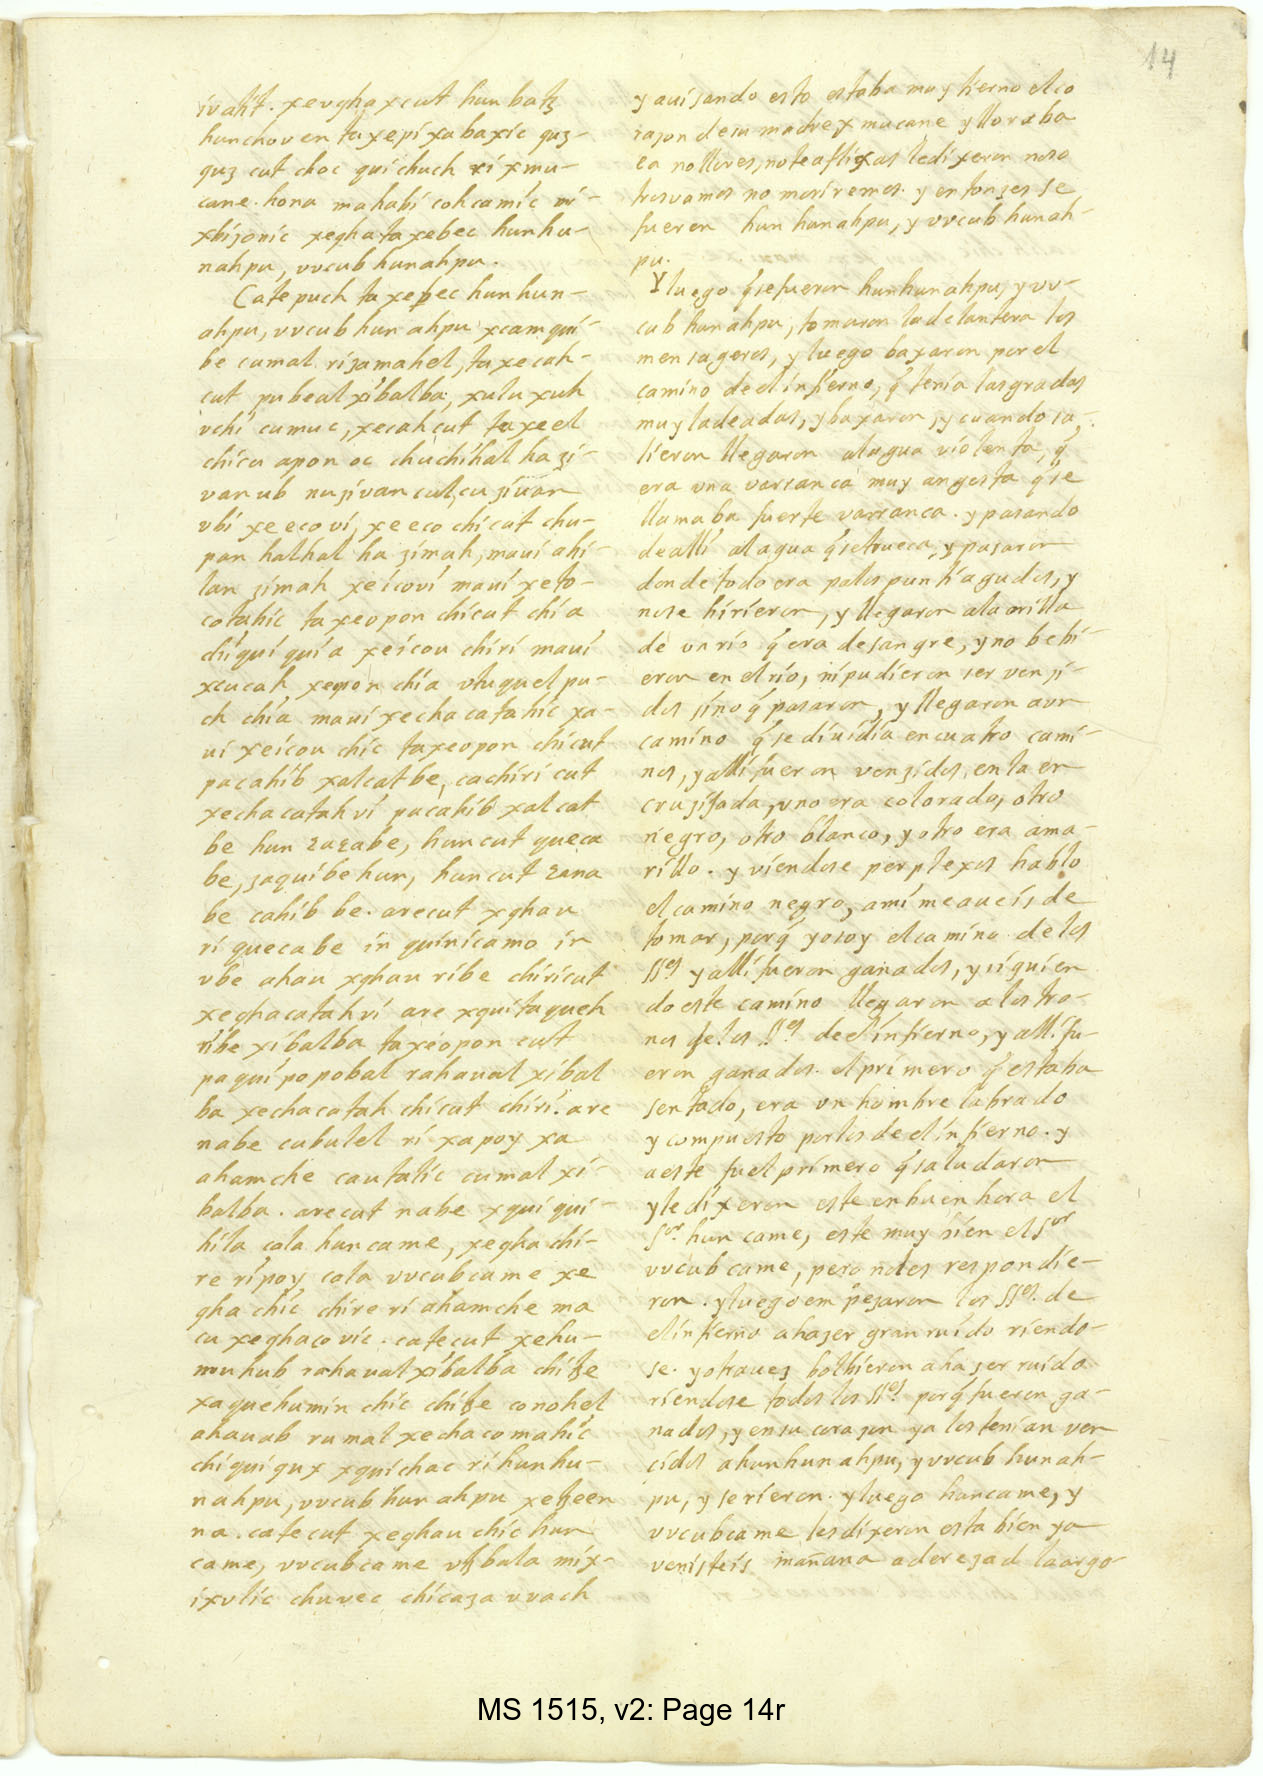 14
ivaht. xevghaxcut hun batz
hunchoven taxepixabaxic quz-
quz cut choc quichuch ri xmu-
cane. hona mahabi cohcamic mi-
xbizonic xeghataxebec hunhu-
nahpu, vvcub hunahpu.
Catepuch taxebec hunhun-
ahpu, vvcub hun ahpu xcamqui-
be cumal rizamahel, taxecah-
cut pubeal xibalba, xulu xuh
vchi cumuc, xecahcut taxeel
chicu apon oc chuchihal ha zi-
van ub nuzivan cul, cuzivan
vbi xeecovi, xeeco chicut chu-
pan halhal ha zimah, maui ahi-
lan zimah xeicovi maui xeto-
cotahic taxeopon chicut chi a
chiquiqui a xeicou chiri maui
xcucah xeopon chi a vtuquel pu-
ch chi a maui xechacatahic xa-
ui xeicou chic taxeopon chicut
pacahib xalcatbe, cachiri cut
xechacatah vi pacahib xalcat
be hun cacabe, huncut queca
be, zaquibehun, huncut cana
be cahib be. arecut xghau
ri quecabe in quinicamo in
vbe ahau xghau ribe chiricut
xeghacatah vi are xquitaqueh
ribe xibalba taxeopon cut
paquipopobal rahaual xibal
ba xechacatah chicut chiri. are
nabe cubulel ri xapoy xa
ahamche cautalic cumal xi-
balba. arecut nabe xquiqui-
hila cala huncame, xegha chi-
re ripoy cala vvcubcame xe
gha chic chire ri ahamche ma
cu xeghacovic. catecut xehu-
muhub rahaual xibalba chitze
xaquehumin chic chitze conohel
ahauab rumal xechacomahic
chiquiqux xquichac ri hunhu-
nahpu, vvcub hun ahpu xetzeen
na. catecut xeghau chic hun
came, vvcubcame vtzbala mix-
ixulic chuvec chicaza vvach
y auisando esto estaba muy tierno el co
razon de su madre xmucane y lloraba
ea no llores, no te aflixas le dixeron noso
tros vamos no moriremos. y entonzes se
fueron hun hunahpu, y vvcub hunah-
pu.
Y luego q̃ se fueron hunhunahpu, y vv-
cub hunahpu, tomaron la delantera los
mensageros, y luego baxaron por el
camino de el infierno, q̃ tenia las gradas
muy ladeadas, y baxaron, y cuando sa-
lieron llegaron al agua violenta, q̃
era vna varranca muy angosta q̃ se
llamaba fuerte varranca. y pasando
de alli al agua q̃ se trueca, y pasaron
donde todo era palos puntiagudos, y
no se hirieron, y llegaron a la orilla
de vn rio q̃ era de sangre, y no bebi-
eron en el rio, ni pudieron ser venzi-
dos sino q̃ pasaron, y llegaron a vn
camino q̃ se diuidia en cuatro cami-
nos, y alli fueron venzidos, en la en
cruzijada, vno era colorado, otro
negro, otro blanco, y otro era ama-
rillo. y viendose perplexos hablo
el camino negro, a mi me aueis de
tomar, porq̃ yo soy el camino de los
SSes y alli fueron ganados, y siguien
do este camino llegaron a los tro-
nos de los SSes de el infierno, y alli fu-
eron ganados. el primero q̃ estaba
sentado, era vn hombre labrado
y compuesto por los de el infierno. y
a este fue el primero q̃ saludaron
y le dixeron este en buen hora el
Sor. hun came, este muy bien el Sor
vvcub came, pero no les respondie-
ron. y luego empezaron los SSes. de
el infierno a hazer gran ruido riendo-
se. y otra uez bolbieron a hazer ruido
riendose todos los SSes porq̃ fueron ga-
nados, y en su corazon ya los tenian ven
cidos a hunhunahpu, y vvcub hunah-
pu, y se rieron. y luego huncame, y
vvcubcame les dixeron esta bien ya
venisteis mañana aderezad la argo-
MS 1515, v2: Page 14r